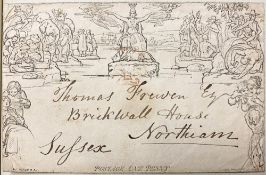 Thomas Frewen Esq
Brickwall House
Northiam
Sussex
POSTAGE ONE PENNY